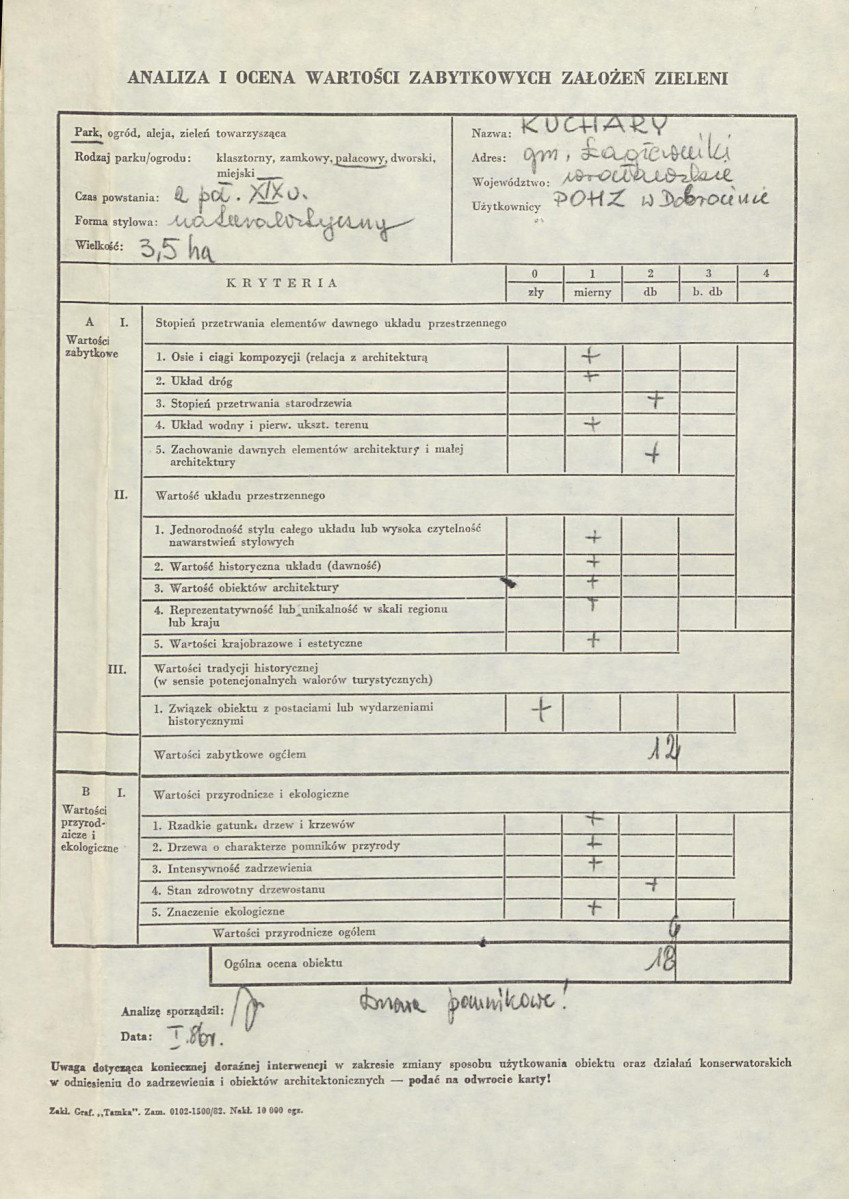 ANALIZA I OCENA WARTOŚCI ZABYTKOWYCH ZAŁOŻEŃ ZIELENI
Park, ogród, aleja, zieleń towarzysząca
Rodzaj parku/ogrodu: klasztorny, zamkowy, pałacowy, dworski,
miejski
Czas powstania: 2 poł. XIX w.
Forma stylowa: naturalistyczny
Wielkość: 3,5 ha
Nazwa: KUCHARY
Adres: gm. Łagiewniki
Województwo: wrocławskie
Użytkownicy POHZ w Dobrocinie
KRYTERIA
0 1 2 3 4
zły mierny db b. db
A I. Stopień przetrwania elementów dawnego układu przestrzennego
Wartości
zabytkowe
1. Osie i ciągi kompozycji (relacja z architekturą +
2. Układ dróg +
3. Stopień przetrwania starodrzewia +
4. Układ wodny i pierw. ukszt. terenu +
5. Zachowanie dawnych elementów architektury i małej
architektury +
II. Wartość układu przestrzennego
1. Jednorodność stylu całego układu lub wysoka czytelność
nawarstwień stylowych +
2. Wartość historyczna układu (dawność) +
3. Wartość obiektów architektury +
4. Reprezentatywność lub unikalność w skali regionu
lub kraju +
5. Wartości krajobrazowe i estetyczne +
III. Wartości tradycji historycznej
(w sensie potencjonalnych walorów turystycznych)
1. Związek obiektu z postaciami lub wydarzeniami
historycznymi +
Wartości zabytkowe ogółem 12
B I. Wartości przyrodnicze i ekologiczne
Wartości
przyrod-
nicze i
ekologiczne
1. Rzadkie gatunki drzew i krzewów +
2. Drzewa o charakterze pomników przyrody +
3. Intensywność zadrzewienia +
4. Stan zdrowotny drzewostanu +
5. Znaczenie ekologiczne +
Wartości przyrodnicze ogółem 6
Ogólna ocena obiektu 18
Analizę sporządził:
pomnikowe!
Data: I.86r.
Uwaga dotycząca koniecznej doraźnej interwencji w zakresie zmiany sposobu użytkowania obiektu oraz działań konserwatorskich
w odniesieniu do zadrzewienia i obiektów architektonicznych — podać na odwrocie karty!
Zakł. Graf. „Tamka". Zam. 0102-1500/82. Nakł. 10 000 egz.